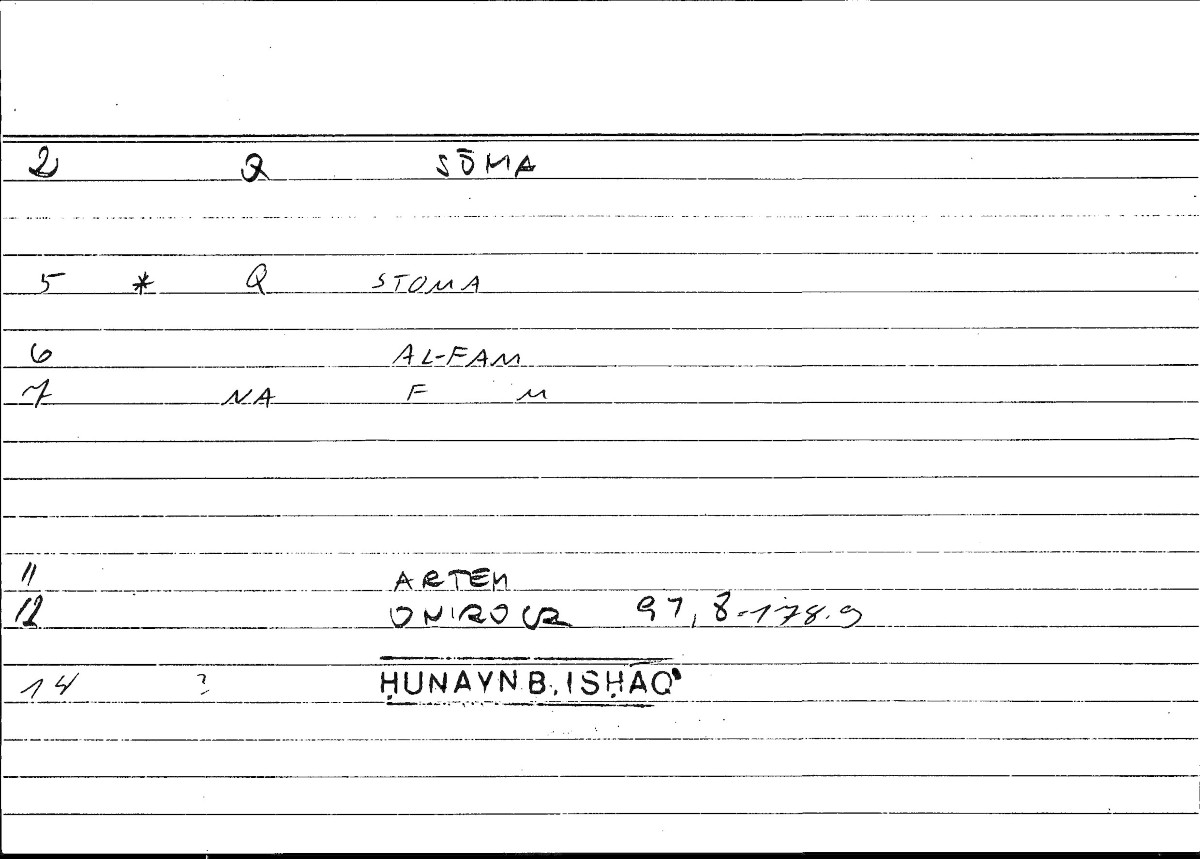 2 Q SŌMA
5 * Q STOMA
6 AL-FAM
7 NA F M
11 ARTEM
12 ONIROCR 97,8-178.9
14 ? ḤUNAYN B. ISḤĀQ